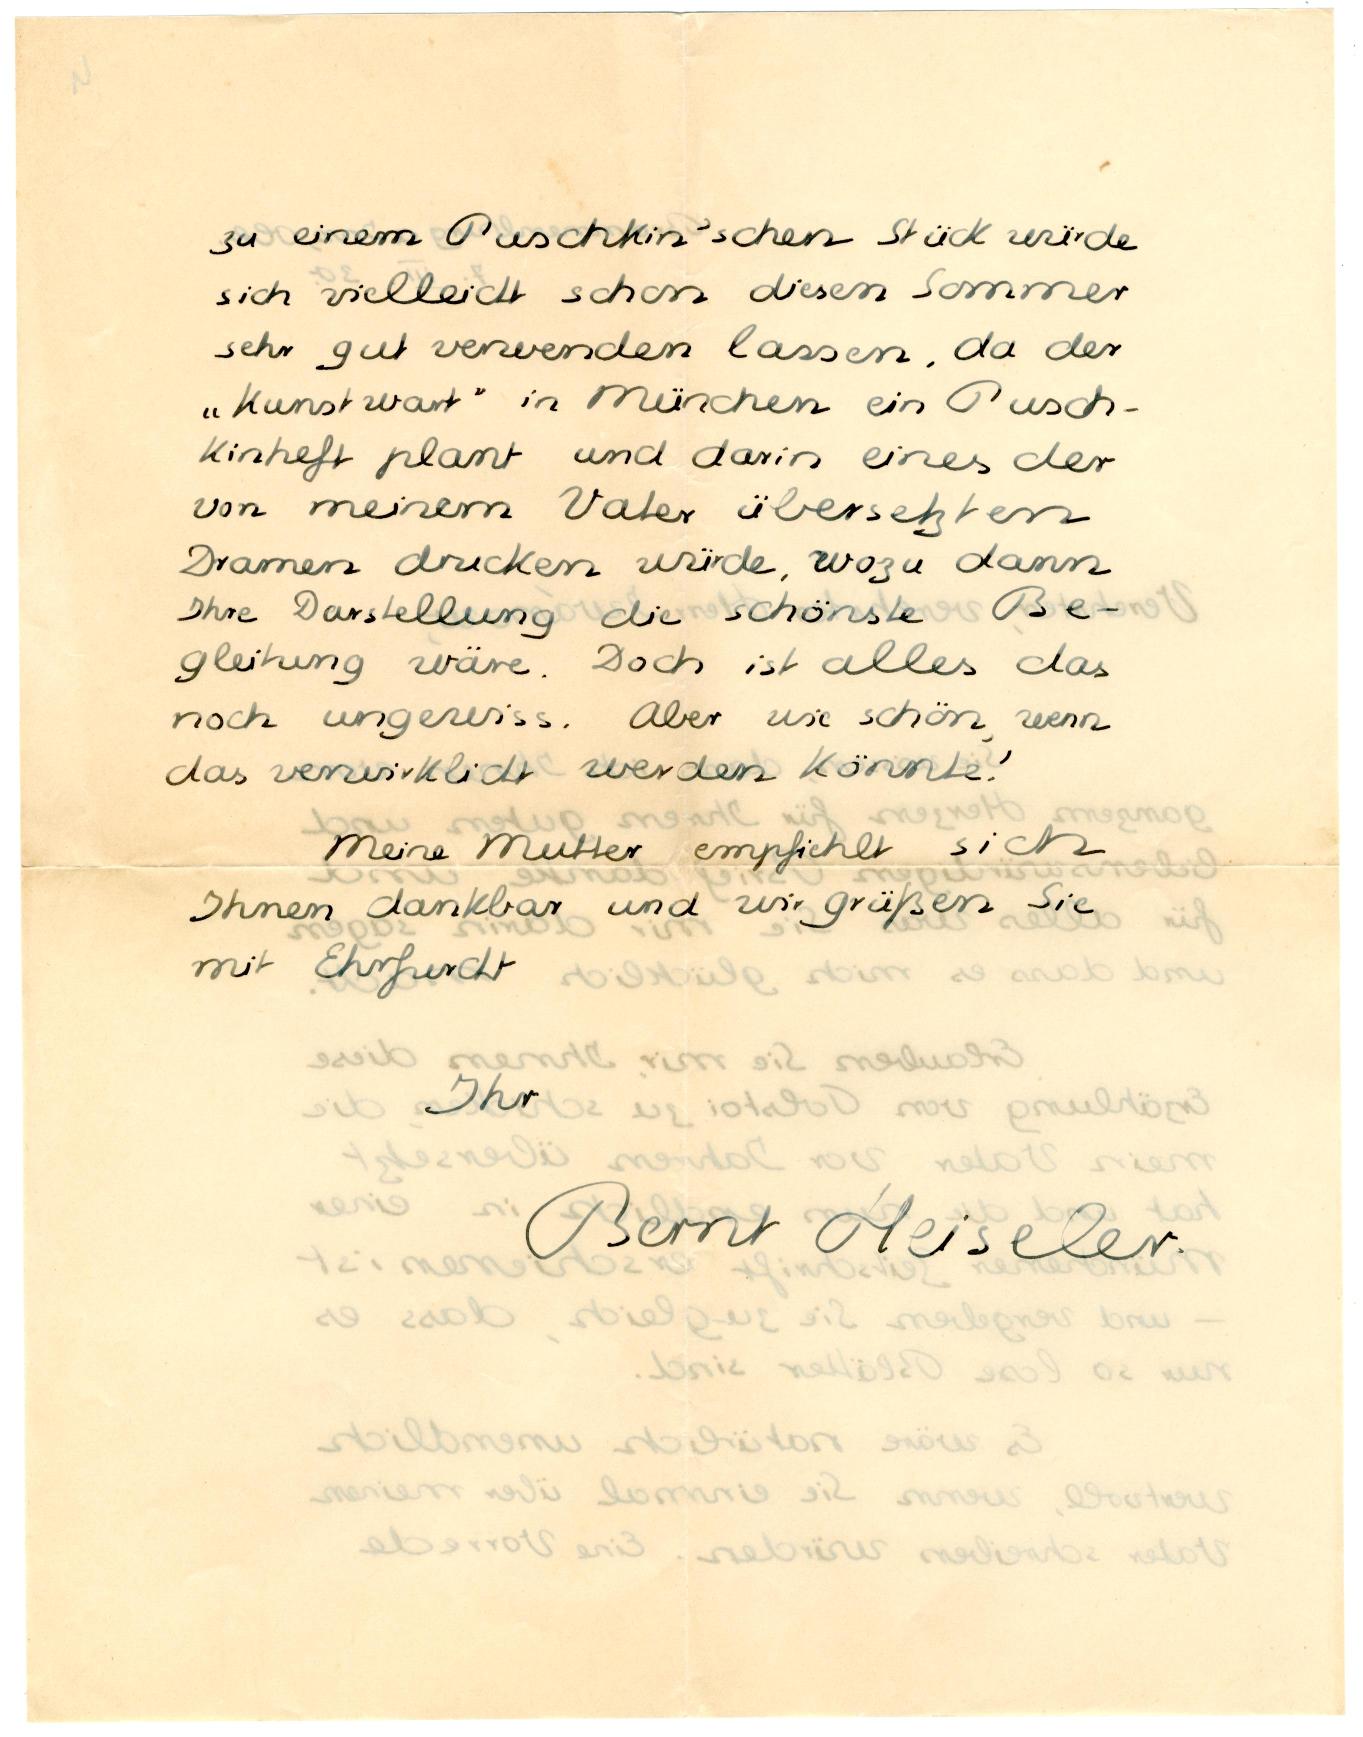 zu einem Puschkin'schen Stück würde
sich vielleicht schon diesen Sommer
sehr gut verwenden lassen, da der
„Kunstwart" in München ein Pusch-
kinheft plant und darin eines der
von meinem Vater übersetzten
Dramen drucken würde, wozu dann
Ihre Darstellung die schönste Be-
gleitung wäre. Doch ist alles das
noch ungewiss. Aber wie schön, wenn
das verwirklicht werden könnte!
Meine Mutter empfiehlt sich
Ihnen dankbar und wir grüßen Sie
mit Ehrfurcht
Ihr
Bernt Heiseler.